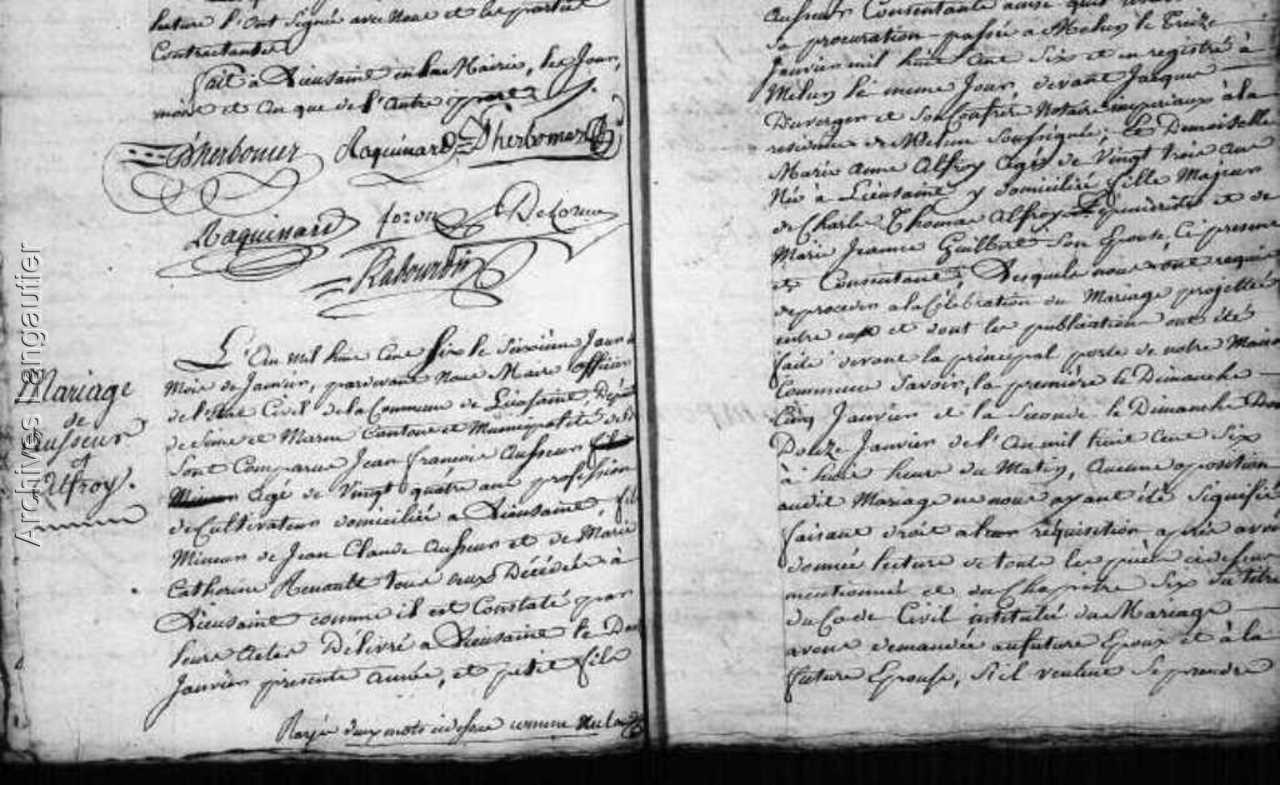 lecture l'ont Signé avec Nous et les partie
Contractantes
fait à Lieusaint en la Mairie, les Jour,
mois et an que de l'autre part
D'herbomez Raquinard D'herbomez
Raquinard Delorme
Rabourdin
Mariage
de
Ausseur
et
Alfroy.
L'An mil huit Cent Six le
Mois de Janvier, pardevant Nous Maire officier
de l'Etat Civil de la Commune de Lieusaint, Dépt
de Seine et Marne Cantone et Municipalité de
Sont Comparus Jean francois Ausseur
Agé de Vingt quatre ans profession
de Cultivateur domicilié à Lieusaint, fils
Mineur de Jean Claude Ausseur et de Marie
Catherine Renault tous deux Décédés à
Lieusaint comme il est Constaté par
leurs Actes Délivré a Lieusaint le
Janvier présente année, et petit fils
Rayé deux mots cidessus comme Nul
Ausseur Consentante ainsi quil
Sa procuration passée a Melun le Treize
Janvier mil huit Cent Six et enregistré à
Melun le meme Jour, devant Jacques
Duvergen et Son Confrere Notaire imperiaux à la
residence de Melun Soussignés; et Demoiselle
Marie anne Alfroy Agée de Vingt trois ans
Née à Lieusaint y domiciliée fille Majeure
de Charle Thomas Alfroy Epinieriste et de
Marie Jeanne Guilbat Son Epouse, Ci présent
et Consentant, Lesquels nous ont requis
de proceder a la Célébration du Mariage projetté
entre eux et dont les publications ont été
faite devant la principal porte de notre Maison
Commune Savoir, la première le Dimanche
Cinq Janvier et la Seconde le Dimanche
Douze Janvier de l'An mil huit Cent Six
à huit heure du Matin, Aucune opposition
audit Mariage ne nous ayant été Signifié
faisant droit a leur réquisition après avoir
donnée lecture de toute les pièces cidessus
mentionnée et du Chapitre Six du titre
du Code Civil institulé du Mariage
avons demandée au future Epoux et à la
future Epouse, Sil veulent Se prendre
Archives Langautier